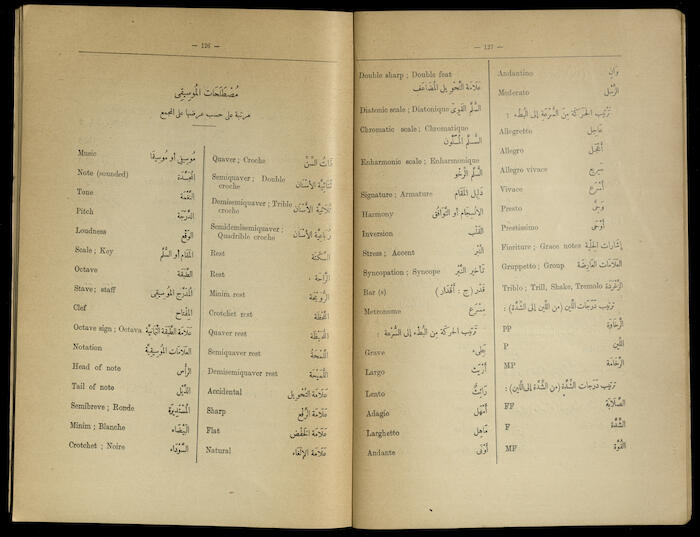 — 126 —
مُصْطَلَحَات الْمُوسِيقَى
مرتبة على حسب عرضها على المجمع
Music مُوسِيقَى أو مُوسِيقَا
Note (sounded) الْجَسَّة
Tone النَّغْمَة
Pitch الدَّرَجَة
Loudness الْوَقْع
Scale ; Key الْمَقَام أو السُّلَّم
Octave الطَّبَقَة
Stave ; staff الْمُدَرَّج الْمُوسِيقِى
Clef الْمِفْتَاح
Octave sign ; Octava عَلَامَة الطَّبَقَة الثَّانِيَّة
Notation الْعَلَامَات الْمُوسِيقِيَّة
Head of note الرَّأْس
Tail of note الذَّيْل
Semibreve ; Ronde الْمُسْتَدِيرَة
Minim ; Blanche الْبَيْضَاء
Crotchet ; Noire السَّوْدَاء
Quaver ; Croche ذَاتُ السِّنّ
Semiquaver ; Double
croche ثُنَائِيَّة الْأَسْنَان
Demisemiquaver ; Trible
croche ثُلَاثِيَّة الْأَسْنَان
Semidemisemiquaver ;
Quadrible croche رُبَاعِيَّة الْأَسْنَان
Rest السَّكْتَة
Rest الرَّاحَة .
Minim rest
Crotchet rest اللَّحْظَة
Quaver rest اللُّحَيْظَة
Semiquaver rest اللَّمْحَة
Demisemiquaver rest اللُّمَيْحَة
Accidental عَلَامَة التَّحْوِيل
Sharp عَلَامَة الرَّفْع
Flat عَلَامَة الْخَفْض
Natural عَلَامَة الْإِلْغَاء
— 127 —
Double sharp ; Double feat
عَلَامَة التَّحْوِيل الْمُضَاعَف
Diatonic scale ; Diatonique السُّلَّم الْقَوِىّ
Chromatic scale ; Chromatique
السُّلَّم الْمُلَوَّن
Enharmonic scale ; Enharmonique
السُّلَّم الرَّخْو
Signature ; Armature دَلِيل الْمَقَام
Harmony الِانْسِجَام أو التَّوَافُق
Inversion الْقَلْب
Stress ; Accent النَّبْر
Syncopation ; Syncope تَأْخِير النَّبْر
Bar (s) قَدْر (ج : أَقْدَار)
Metronome
تَرْتِيب الحَرَكَة مِن الْبُطْء إلى السُّرْعَة :
Grave بَطِىء
Largo أَرْيَث
Lento رَائِث
Adagio أَمْهَل
Larghetto مَاهِل
Andante أَوْنَى
Andantino وَانٍ
Mederato الرَّسْل
تَرْتِيب الحَرَكَة مِن السُّرْعَة إلى الْبُطْء :
Allegretto عَاجِل
Allegro أَعْجَل
Allegro vivace سَرِيع
Vivace أَسْرَع
Presto وَحِىّ
Prestissimo أَوْحَى
Fioriture ; Grace notes إِشَارَات الْحِلْيَة
Gruppetto ; Group الْعَلَامَات الْعَارِضَة
Triblo ; Trill, Shake, Tremolo الزَّغْرَدَة
تَرْتِيب دَرَجَات اللِّين (من اللِّين إلى الشِّدَّة) :
PP الرَّخَاوَة
P اللِّين
MP الرَّخَامَة
تَرْتِيب دَرَجَات الشِّدَّة (من الشِّدَّة إلى اللِّين) :
FF الصَّلَابَة
F الشِّدَّة
MF الْقُوَّة